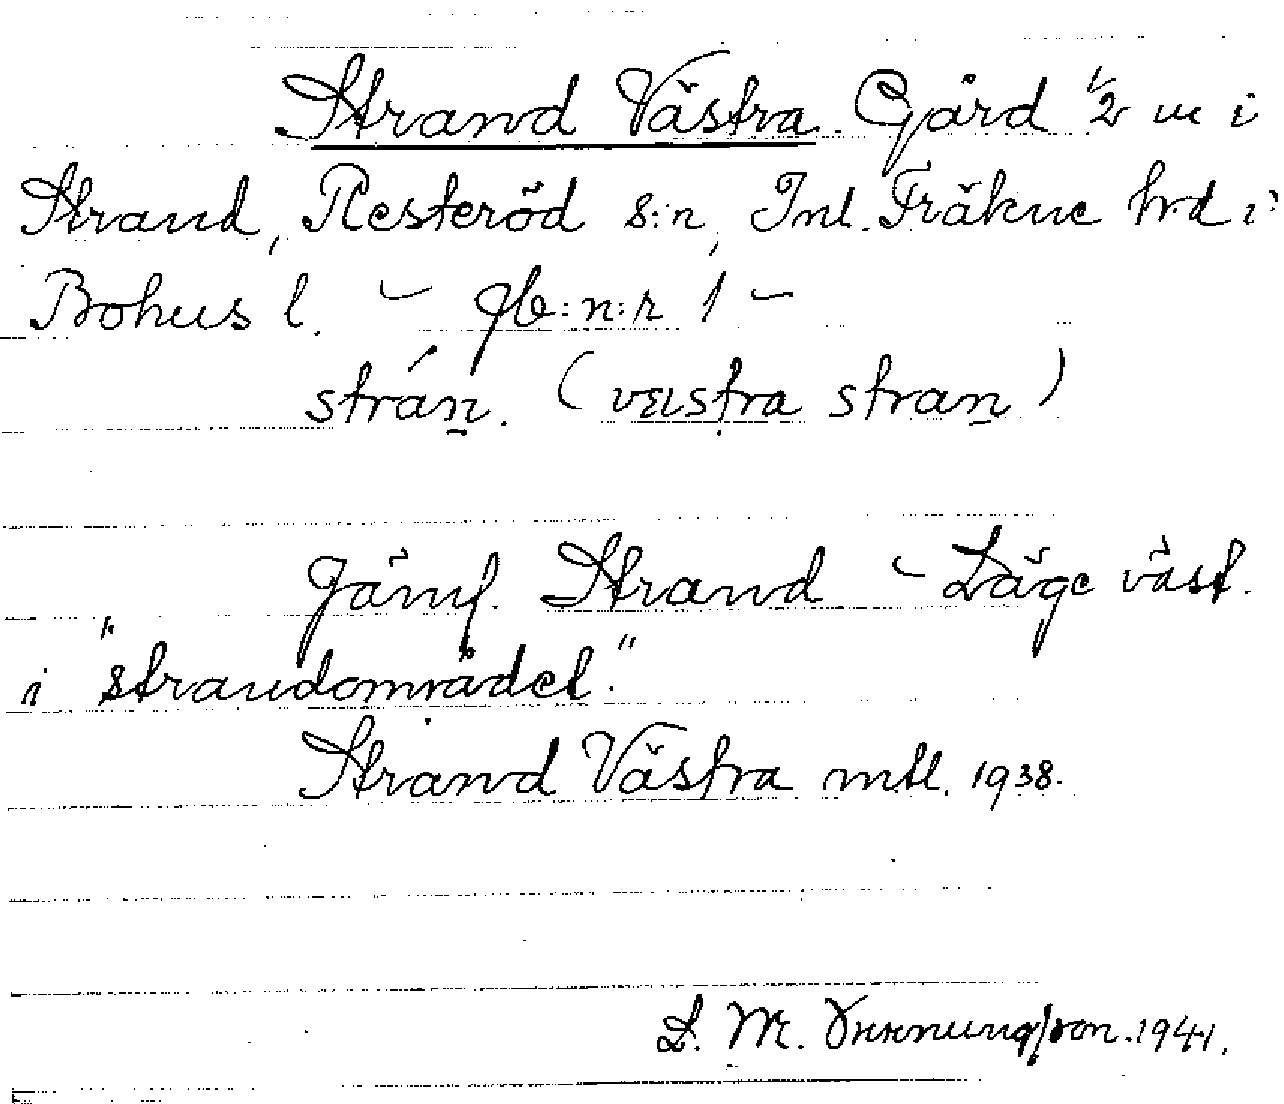 Strand Västra. Gård 1/2 m i
Strand, Resteröd s:n, Inl. Fräkne hrd i
Bohus l. – jb:n:r 1 –
strán. (vɛstra stran)
Jämf. Strand – Läge väst.
i "strandområdet."
Strand Västra mtl. 1938.
L. M. 1941.